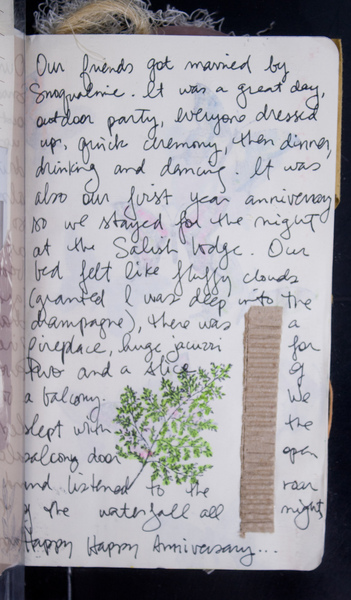 Our friends got married by
Snoqualmie. It was a great day,
outdoor party, everyone dressed
up, quick ceremony, then dinner,
drinking and dancing. It was
also our first year anniversary
so we stayed for the night
at the Salish Lodge. Our
bed felt like fluffy clouds
(granted I was deep into the
champagne), there was a
fireplace, huge jacuzzi for
two and a slice of
a balcony. We
slept with the
balcony door open
and listened to the roar
of the waterfall all night,
Happy Happy Anniversary...